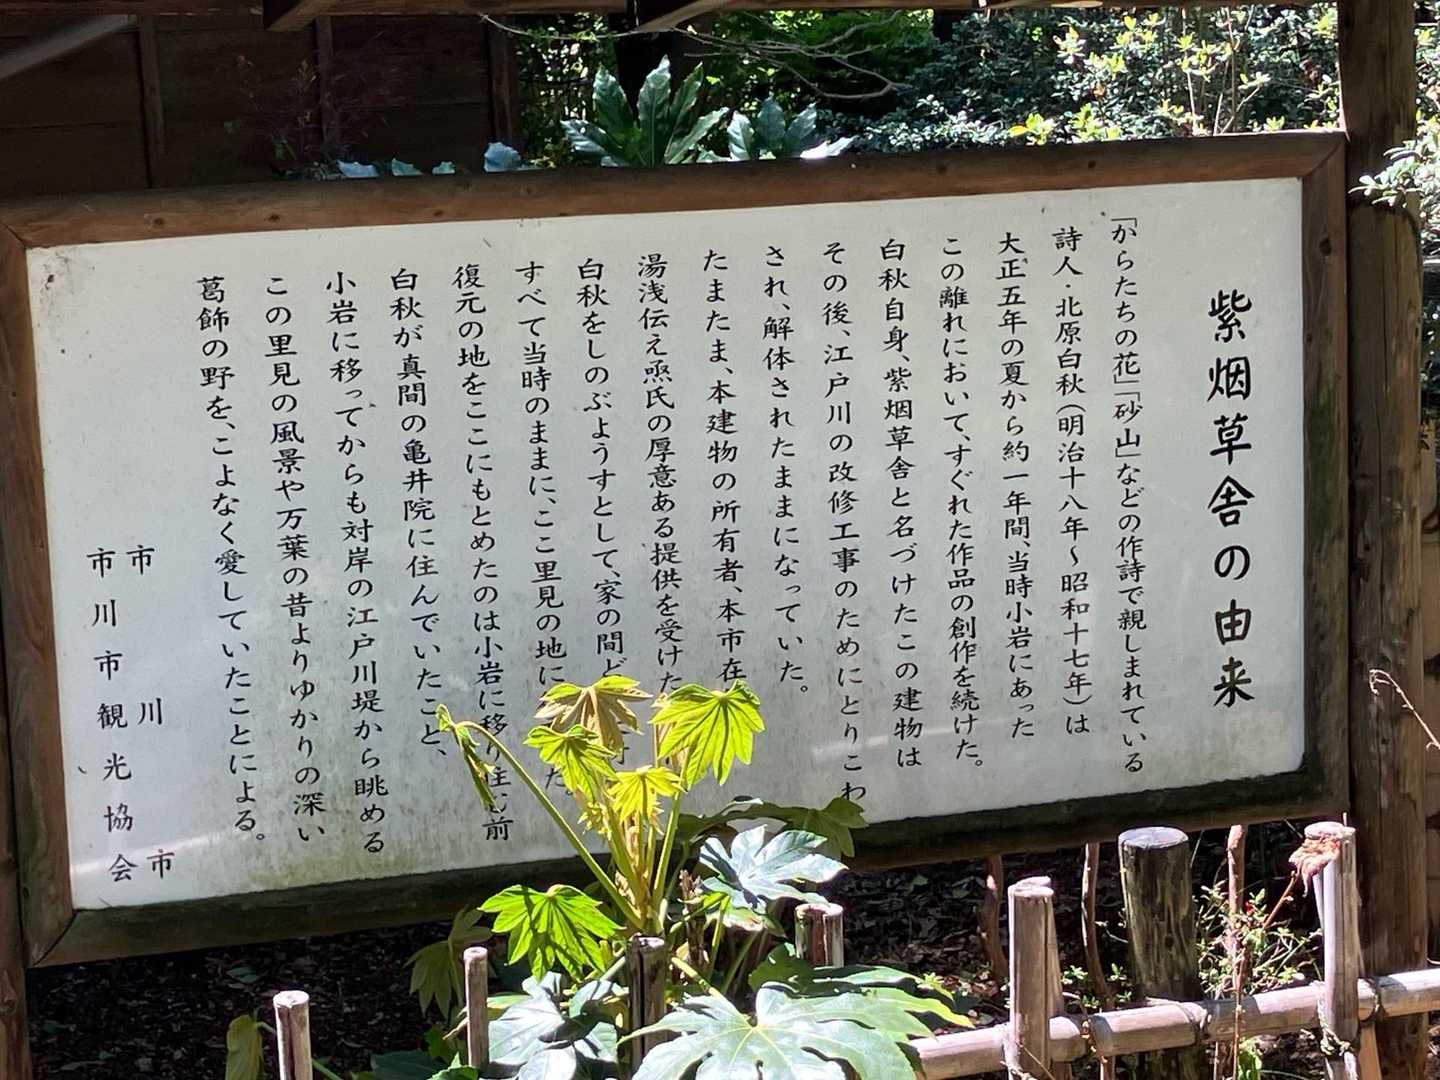 紫烟草舎の由来
「からたちの花」「砂山」などの作詩で親しまれている
詩人・北原白秋(明治十八年〜昭和十七年)は
大正五年の夏から約一年間、当時小岩にあった
この離れにおいて、すぐれた作品の創作を続けた。
白秋自身、紫烟草舎と名づけたこの建物は
その後、江戸川の改修工事のためにとりこわ
され、解体されたままになっていた。
たまたま、本建物の所有者、本市在
湯浅伝え烝氏の厚意ある提供を受けた
白秋をしのぶようすとして、家の間ど
すべて当時のままに、ここ里見の地に
復元の地をここにもとめたのは小岩に移り住む前
白秋が真間の亀井院に住んでいたこと、
小岩に移ってからも対岸の江戸川堤から眺める
この里見の風景や万葉の昔よりゆかりの深い
葛飾の野を、こよなく愛していたことによる。
市川市
市川市観光協会